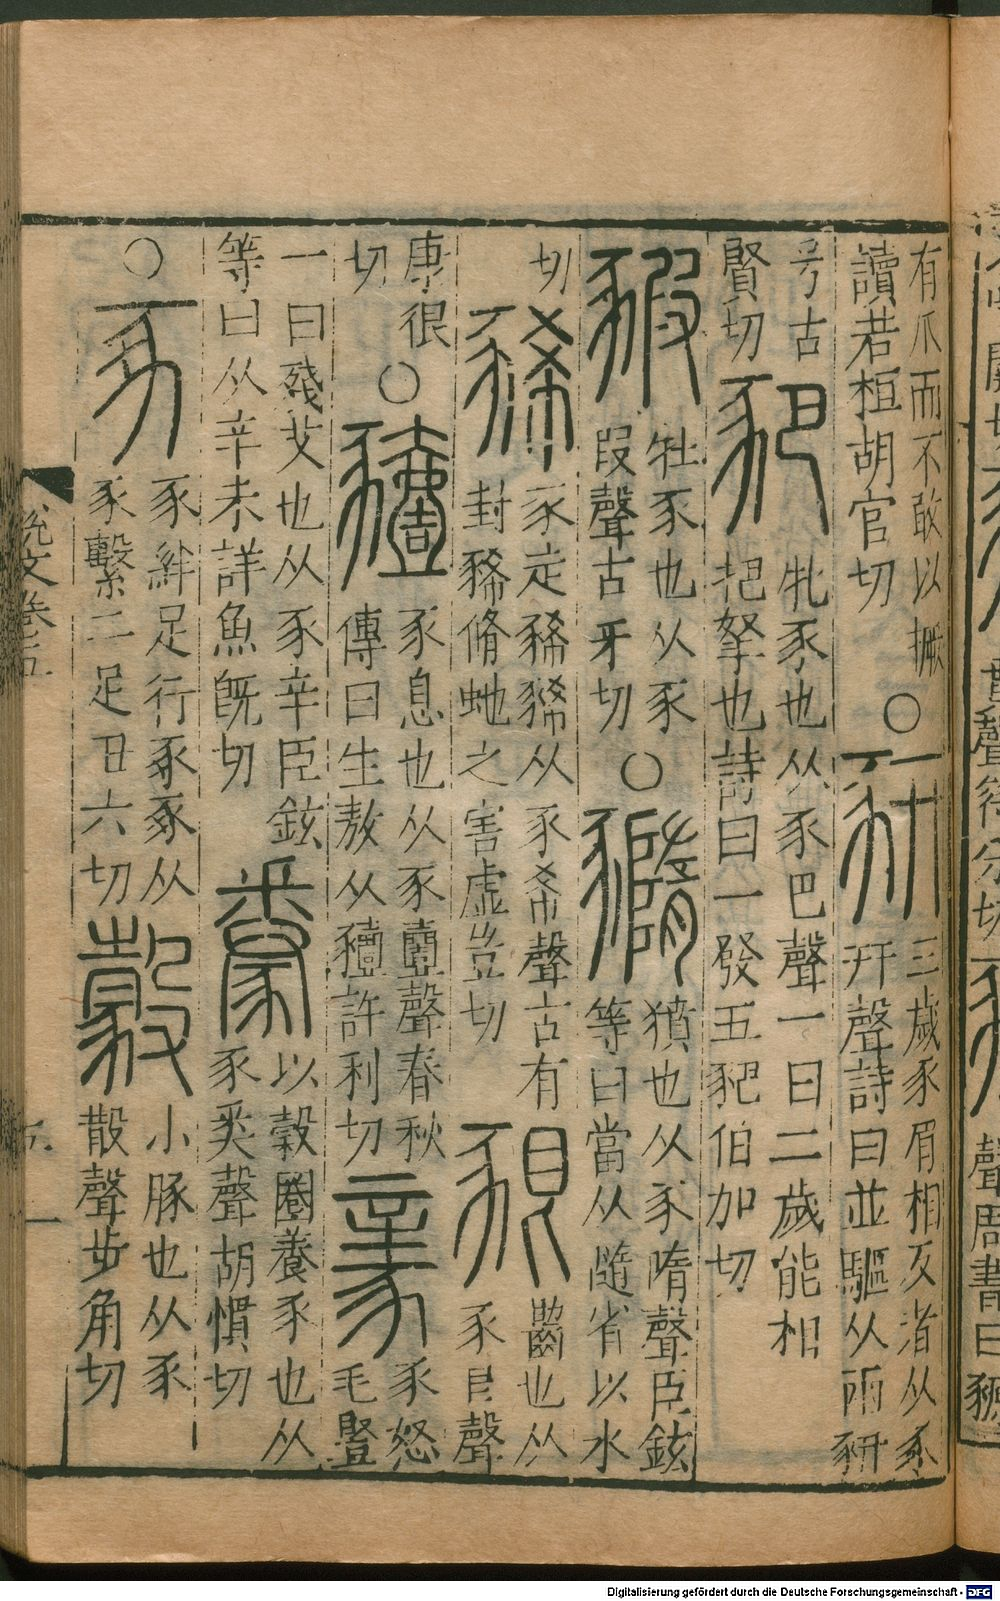 有爪而不敢以撅
讀若桓胡官切
○
豣
三歲豕肩相及者从豕
幵聲詩曰並驅从兩豣
兮古
賢切
豝
牝豕也从豕巴聲一曰二歲能相
把拏也詩曰一發五豝伯加切
豭
牡豕也从豕
叚聲古牙切
○
䝐
豶也从豕隋聲臣鉉
等曰當从隨省以水
切
豨
豕走豨豨从豕希聲古有
封豨脩虵之害虛豈切
豤
齧也从
豕艮聲
康很
切
○
豷
豕息也从豕壹聲春秋
傳曰生敖从豷許利切
豙
豕怒
毛豎
一曰殘艾也从豕辛臣鉉
等曰从辛未詳魚旣切
豢
以穀圈養豕也从
豕𢍏聲胡慣切
○
豖
豕絆足行豖豖从
豕繫二足丑六切
豰
小豚也从豕
散聲步角切
說文卷五
聲周書曰
Digitalisierung gefördert durch die Deutsche Forschungsgemeinschaft - DFG